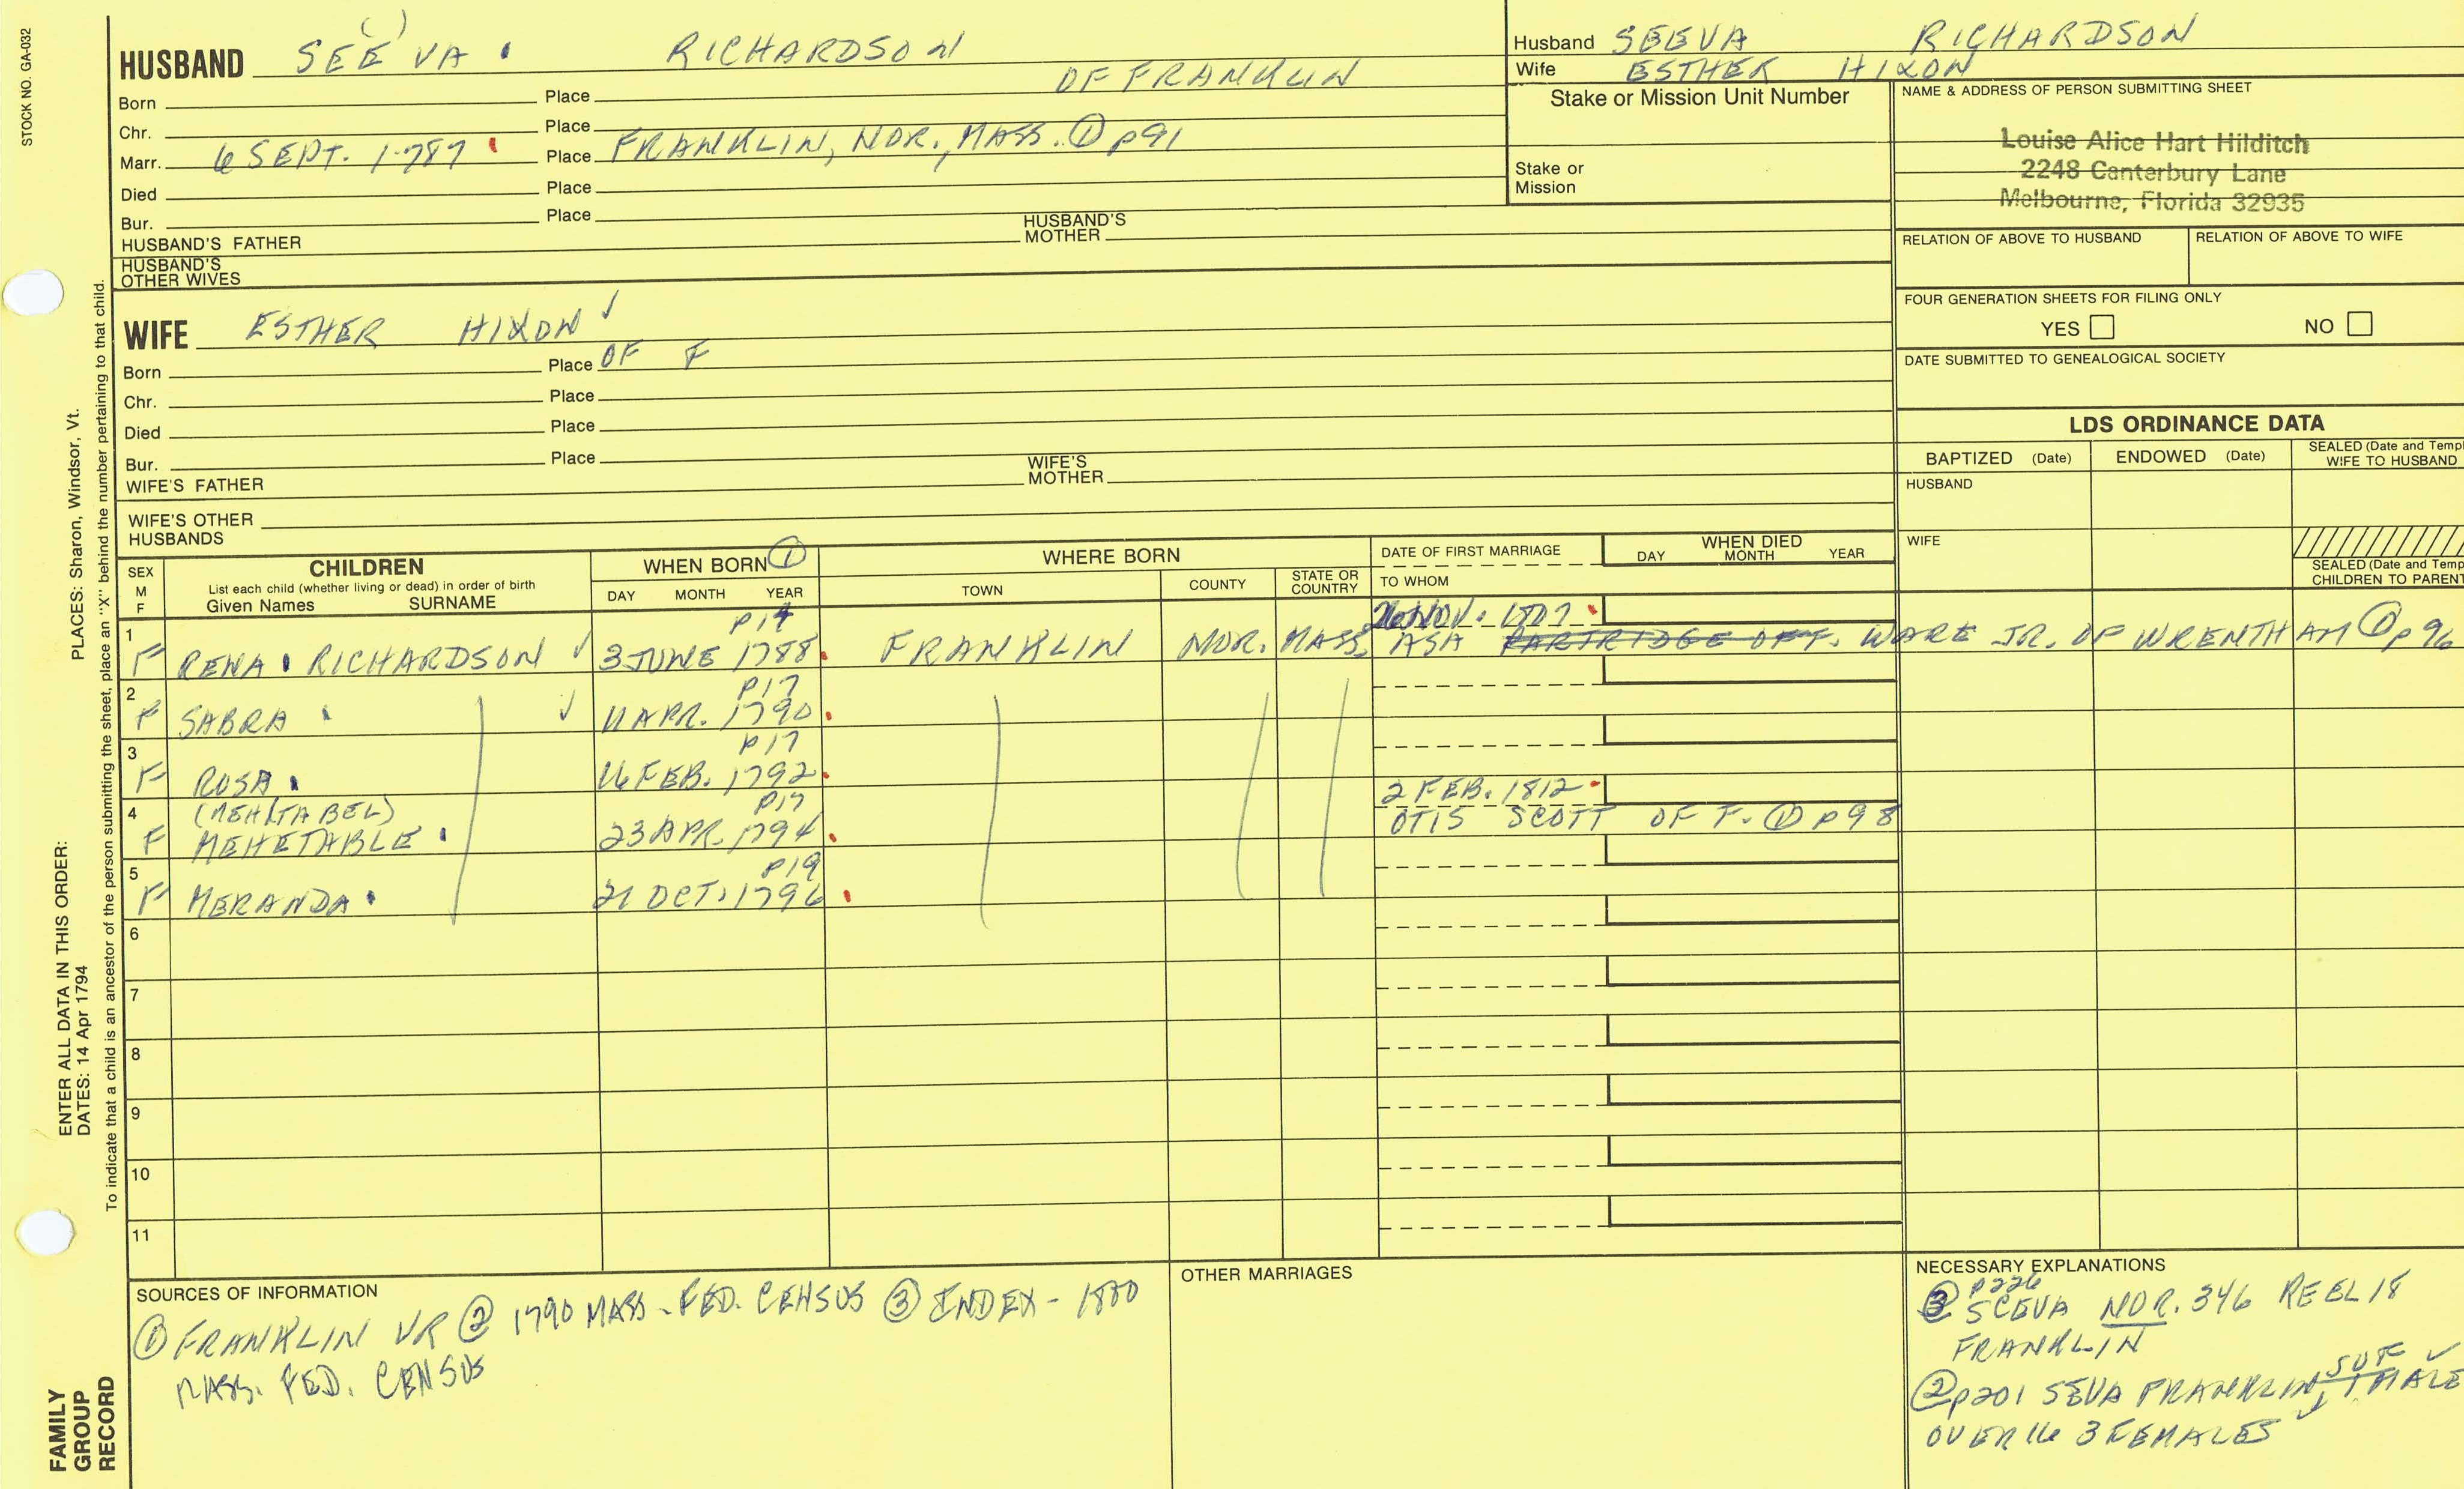 STOCK NO. GA-032
HUSBAND SEE'VA . RICHARDSON
OF FRANKLIN
Born Place
Chr. Place
Marr. 6 SEPT. 1787 Place FRANKLIN, NOR., MASS. ① p91
Died Place
Bur. Place
HUSBAND'S FATHER HUSBAND'S MOTHER
HUSBAND'S OTHER WIVES
Husband SEEVA RICHARDSON
Wife ESTHER HIXON
Stake or Mission Unit Number
Stake or Mission
NAME & ADDRESS OF PERSON SUBMITTING SHEET
Louise Alice Hart Hilditch
2248 Canterbury Lane
Melbourne, Florida 32935
RELATION OF ABOVE TO HUSBAND RELATION OF ABOVE TO WIFE
FOUR GENERATION SHEETS FOR FILING ONLY
YES NO
DATE SUBMITTED TO GENEALOGICAL SOCIETY
WIFE ESTHER HIXON ✓
Born Place OF F
Chr. Place
Died Place
Bur. Place
WIFE'S FATHER WIFE'S MOTHER
WIFE'S OTHER HUSBANDS
LDS ORDINANCE DATA
BAPTIZED (Date) ENDOWED (Date) SEALED (Date and Templ
WIFE TO HUSBAND
HUSBAND
WIFE
SEALED (Date and Temp
CHILDREN TO PARENT
SEX M F
CHILDREN
List each child (whether living or dead) in order of birth
Given Names SURNAME
WHEN BORN ①
DAY MONTH YEAR
WHERE BORN
TOWN COUNTY STATE OR COUNTRY
DATE OF FIRST MARRIAGE
TO WHOM
WHEN DIED
DAY MONTH YEAR
P17 NOV. 1807
1 F RENA . RICHARDSON ✓ 3 JUNE 1788 FRANKLIN NOR. MASS. ASA PARTRIDGE OF F. WARE JR. OF WRENTHAM ① p96
P17
2 F SABRA . ✓ 11 APR. 1790
P17
3 F ROSA . 16 FEB. 1792
P17 2 FEB. 1812
4 (MEHITABEL) OTIS SCOTT OF F. ① p98
F MEHETABLE . 23 APR. 1794
P19
5 F MERANDA . 21 OCT. 1796
6
7
8
9
10
11
SOURCES OF INFORMATION
① FRANKLIN VR ② 1790 MASS. FED. CENSUS ③ INDEX - 1800
MASS. FED. CENSUS
OTHER MARRIAGES
NECESSARY EXPLANATIONS
③ p226
SCEVA NOR. 346 REEL 18
FRANKLIN
② p201 SEVA FRANKLIN 1 MALE
OVER 16 3 FEMALES
PLACES: Sharon, Windsor, Vt.
ENTER ALL DATA IN THIS ORDER:
DATES: 14 Apr 1794
To indicate that a child is an ancestor of the person submitting the sheet, place an "X" behind the number pertaining to that child.
FAMILY
GROUP
RECORD